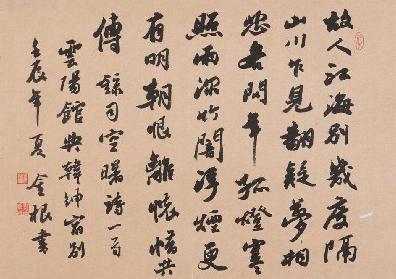 故人江海別幾度隔
山川乍見翻疑夢相
悲各問年孤燈寒
照雨深竹闇浮煙更
有明朝恨離杯惜共
傳 錄司空曙詩一首
雲陽館與韓紳宿別
壬辰年夏金根書